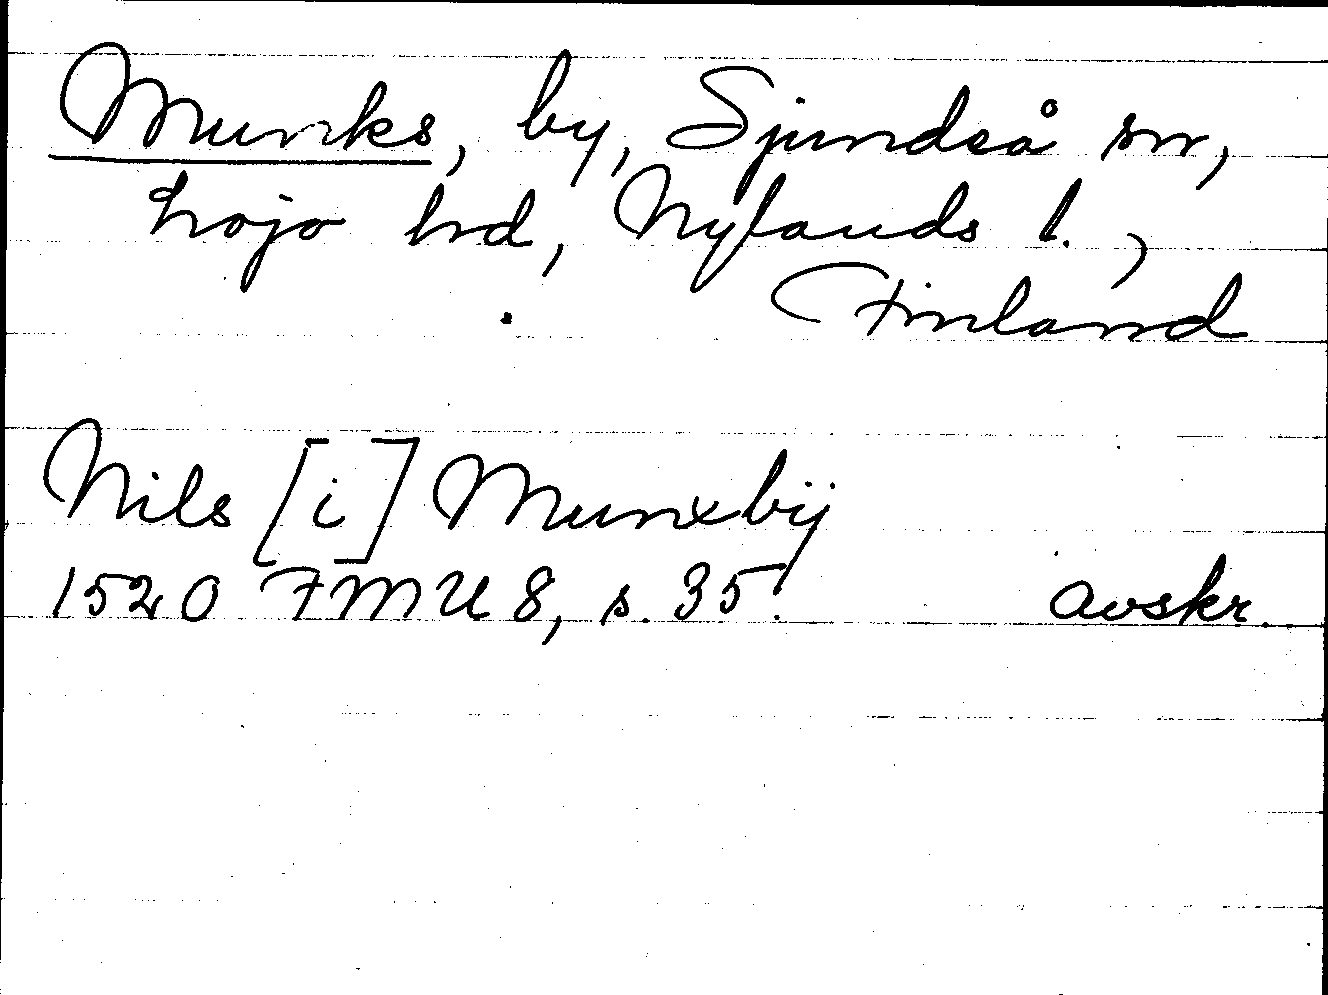 Munks, by, Sjundeå sn,
Lojo hd, Nylands l.,
Finland
Nils [i] Munxbÿ
1520 FMU 8, s. 35. avskr.